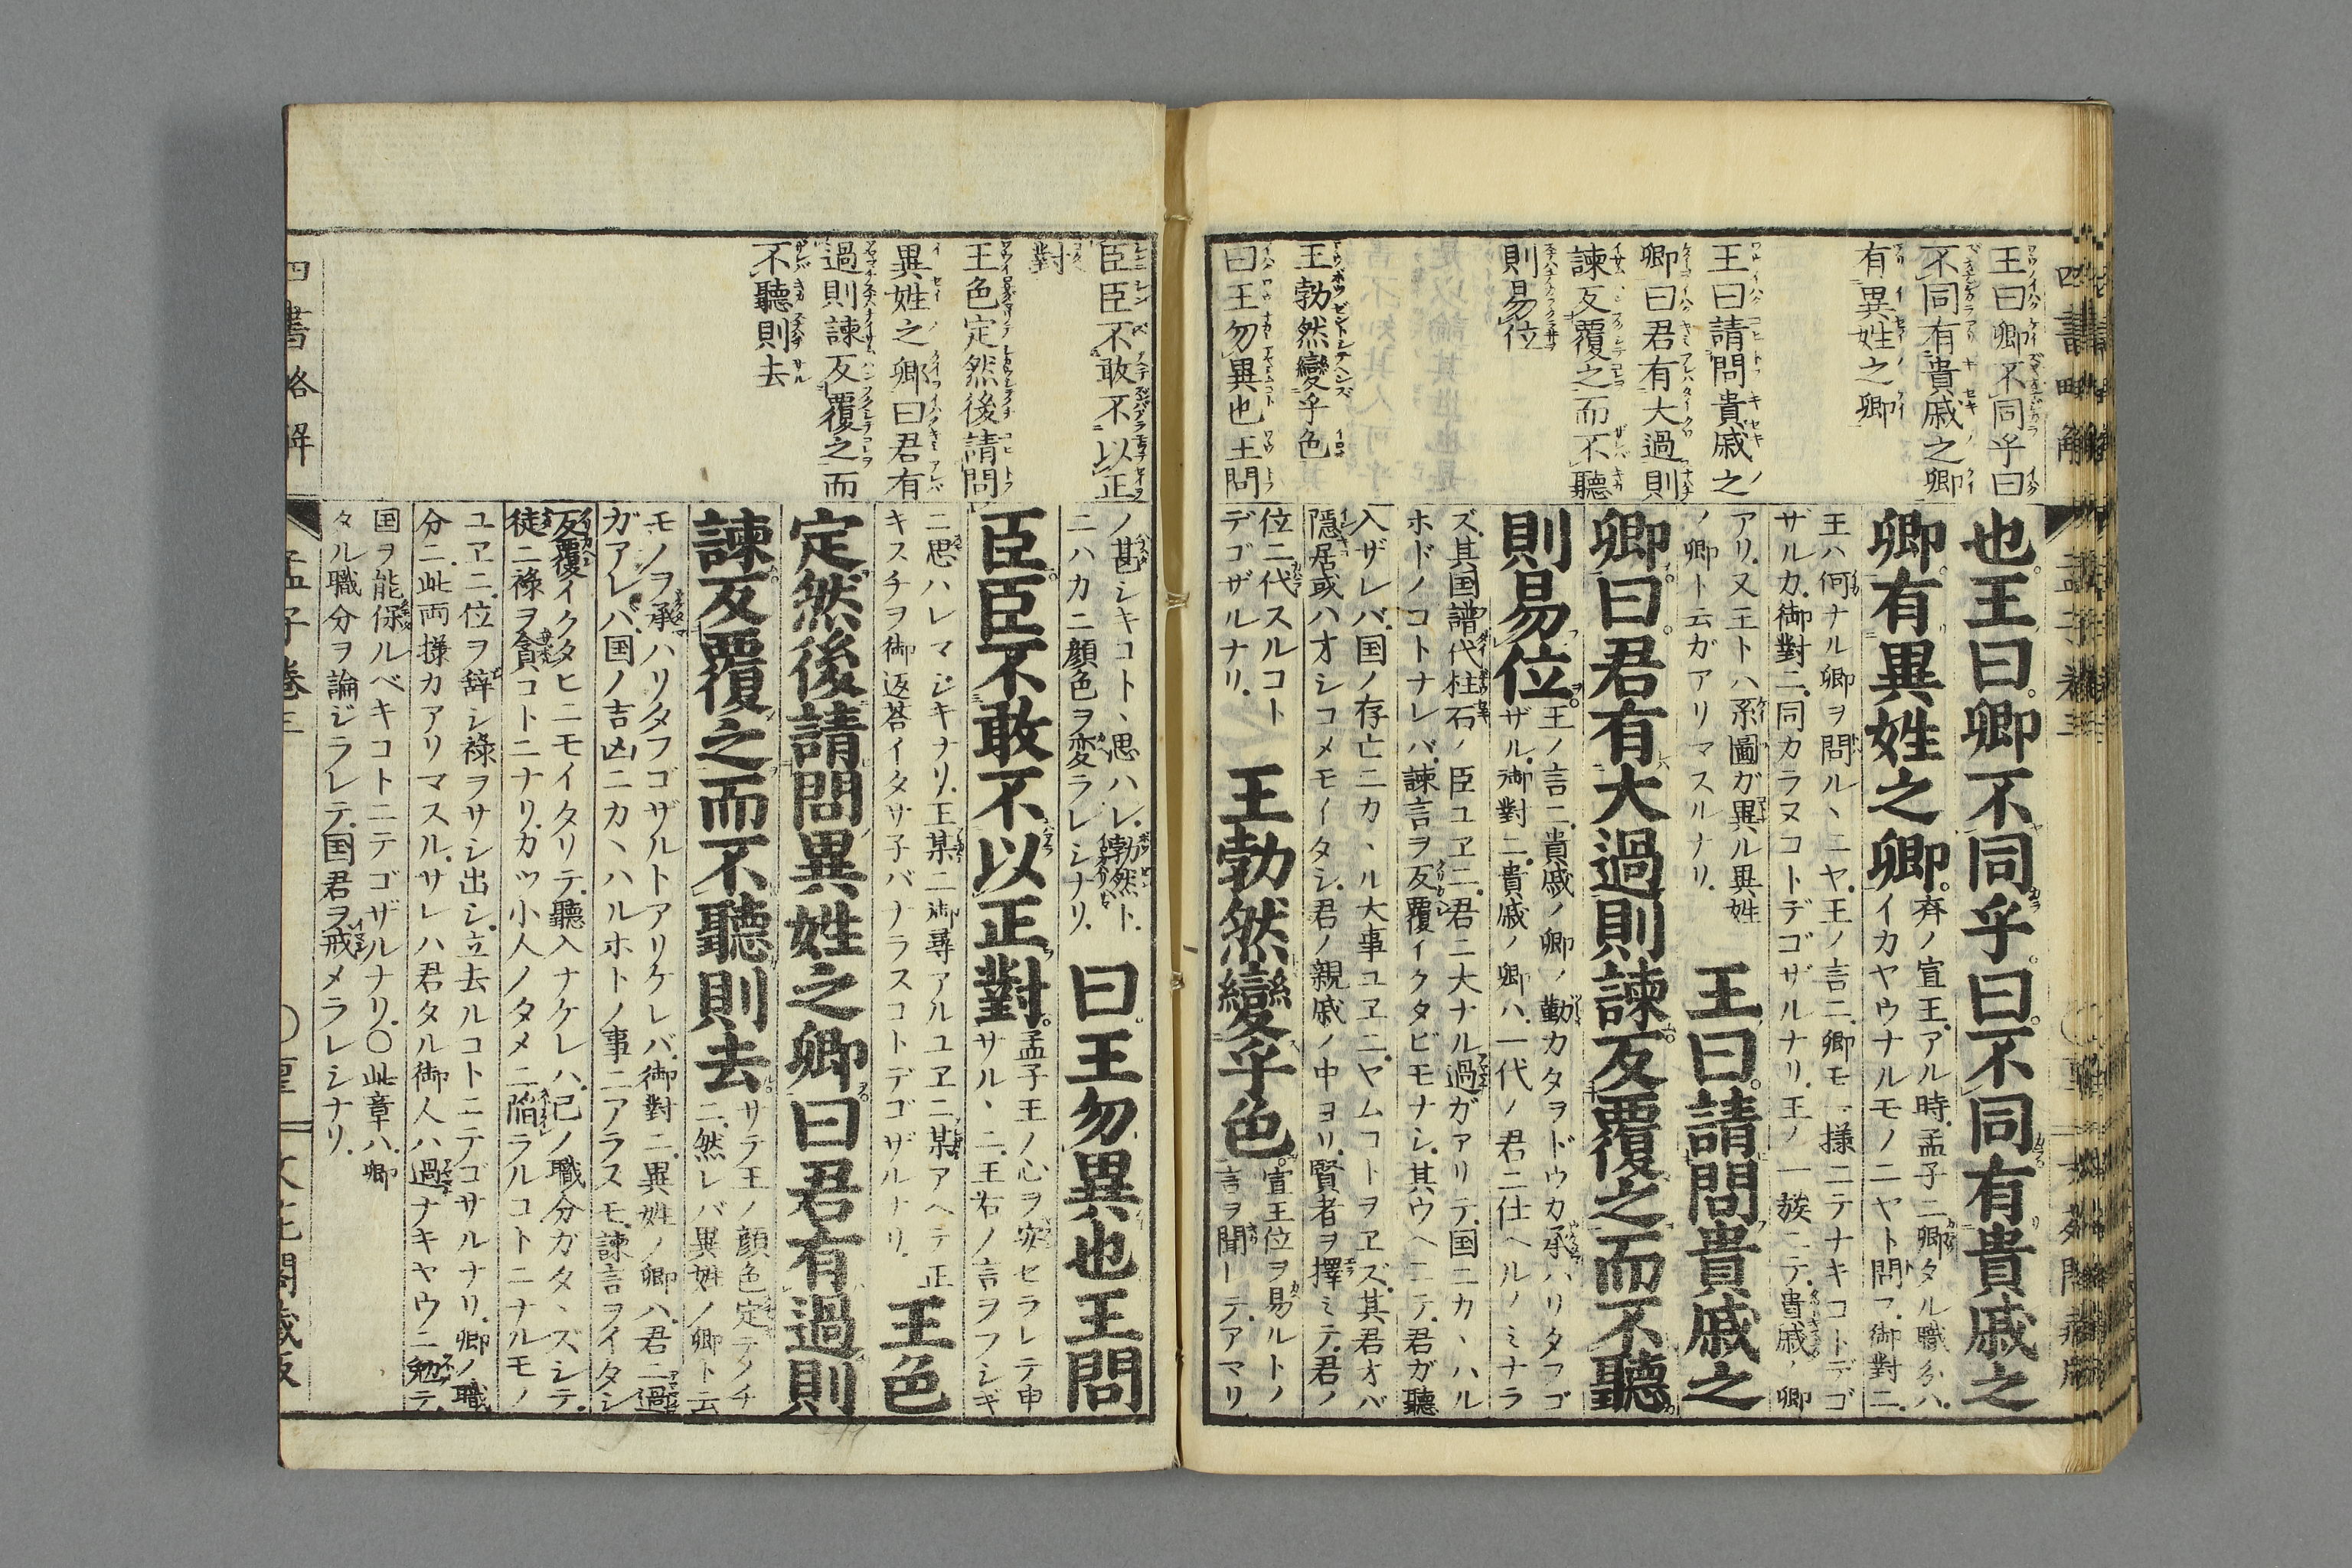 王曰卿不同乎曰
不同有貴戚之卿
有異姓之卿
王曰請問貴戚之
卿曰君有大過則
諫反覆之而不聽
則易位
王勃然變乎色
曰王勿異也王問
也王曰卿不同乎曰不同有貴戚之
卿有異姓之卿
齊ノ宣王アル時孟子ニ卿タル職分ハ
イカヤウナルモノニヤト問フ御對ニ
王ハ何ナル卿ヲ問ルヽニヤ王ノ言ニ卿モ一様ニテナキコトデゴ
ザルカ御對ニ同カラヌコトデゴザルナリ王ノ一族ニテ貴戚ノ卿
アリ又王トハ系圖ガ異ル異姓
ノ卿ト云ガアリマスルナリ
王曰請問貴戚之
卿曰君有大過則諫反覆之而不聽
則易位
王ノ言ニ貴戚ノ卿ノ勤カタヲドウカ承ハリタフゴ
ザル御對ニ貴戚ノ卿ハ一代ノ君ニ仕ヘルノミナラ
ズ其国譜代柱石ノ臣ユヱニ君ニ大ナル過ガアリテ国ニカヽハル
ホドノコトナレバ諫言ヲ反覆イクタビモナシ其ウヘニテ君ガ聽
入ザレバ国ノ存亡ニカヽル大事ユヱニヤムコトヲヱズ其君オバ
隱居或ハオシコメモイタシ君ノ親戚ノ中ヨリ賢者ヲ擇ミテ君ノ
位ニ代スルコト
デゴザルナリ
王勃然變乎色
宣王位ヲ易ルトノ
言ヲ聞ーテアマリ
臣臣不敢不以正
對
王色定然後請問
異姓之卿曰君有
過則諫反覆之而
不聽則去
ノ甚シキコトヽ思ハレ勃然ト
ニハカニ顔色ヲ変ラレシナリ
曰王勿異也王問
臣臣不敢不以正對
孟子王ノ心ヲ安セラレテ申
サルヽニ王右ノ言ヲフシギ
ニ思ハレマジキナリ王某ニ御尋アルユヱニ某アヘテ正
キスチヲ御返荅イタサ子バナラスコトデゴザルナリ
王色
定然後請問異姓之卿曰君有過則
諫反覆之而不聽則去
サテ王ノ顔色定テノチ
ニ然レバ異姓ノ卿ト云
モノヲ承ハリタフゴザルトアリケレバ御對ニ異姓ノ卿ハ君ニ過
ガアレバ国ノ吉凶ニカヽハルホトノ事ニアラスモ諫言ヲイタシ
反覆イクタヒニモイタリテ聽入ナケレハ己ノ職分ガタヽズシテ
徒ニ祿ヲ貪コトニナリカツ小人ノタメニ陷ラルコトニナルモノ
ユヱニ位ヲ辞シ祿ヲサシ出シ立去ルコトニテゴサルナリ卿ノ職
分ニ此両樣カアリマスルサレハ君タル御人ハ過ナキヤウニ勉テ
国ヲ能保ルベキコトニテゴザルナリ〇此章ハ卿
タル職分ヲ論ジラレテ国君ヲ戒メラレシナリ
四書略解
孟子卷三